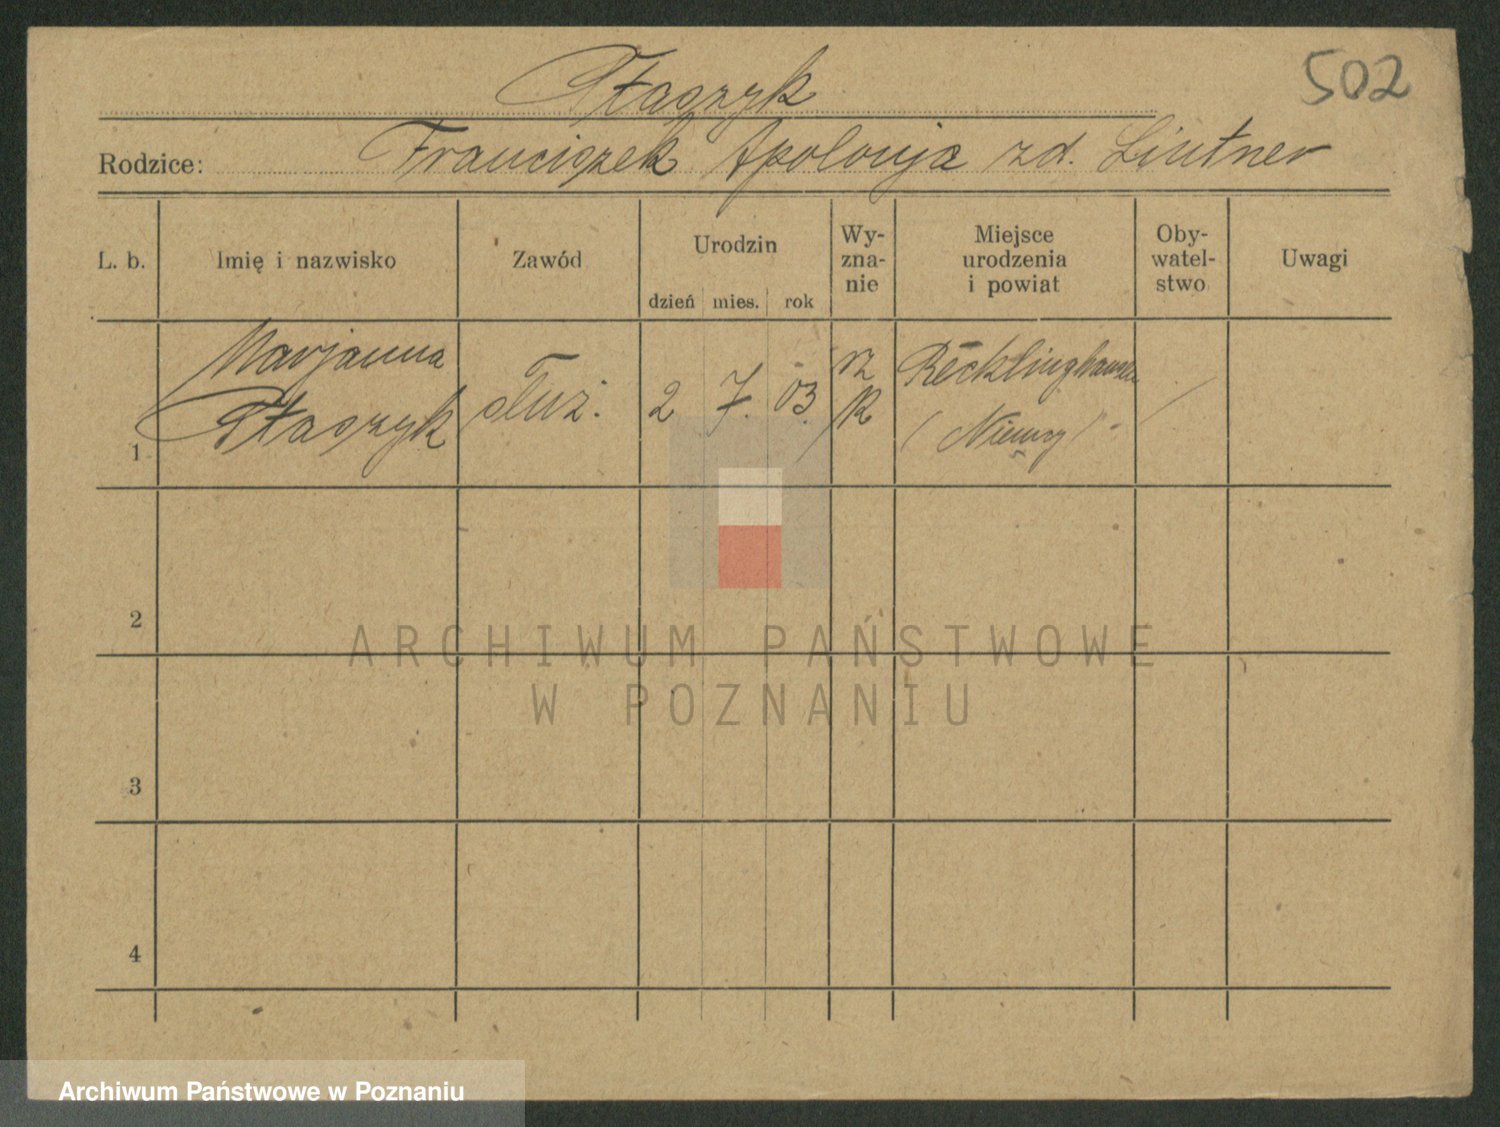 502
Ptaszyk
Rodzice: Franciszek Apolonja zd. Lintner
L. b.
Imię i nazwisko
Zawód
Urodzin
dzień mies. rok
Wy-
zna-
nie
Miejsce
urodzenia
i powiat
Oby-
watel-
stwo
Uwagi
1
Marjanna
Ptaszyk
służ.
2 7. 03.
rz
k
Recklinghausen
(Niemcy)
2
3
4
ARCHIWUM PAŃSTWOWE
W POZNANIU
Archiwum Państwowe w Poznaniu